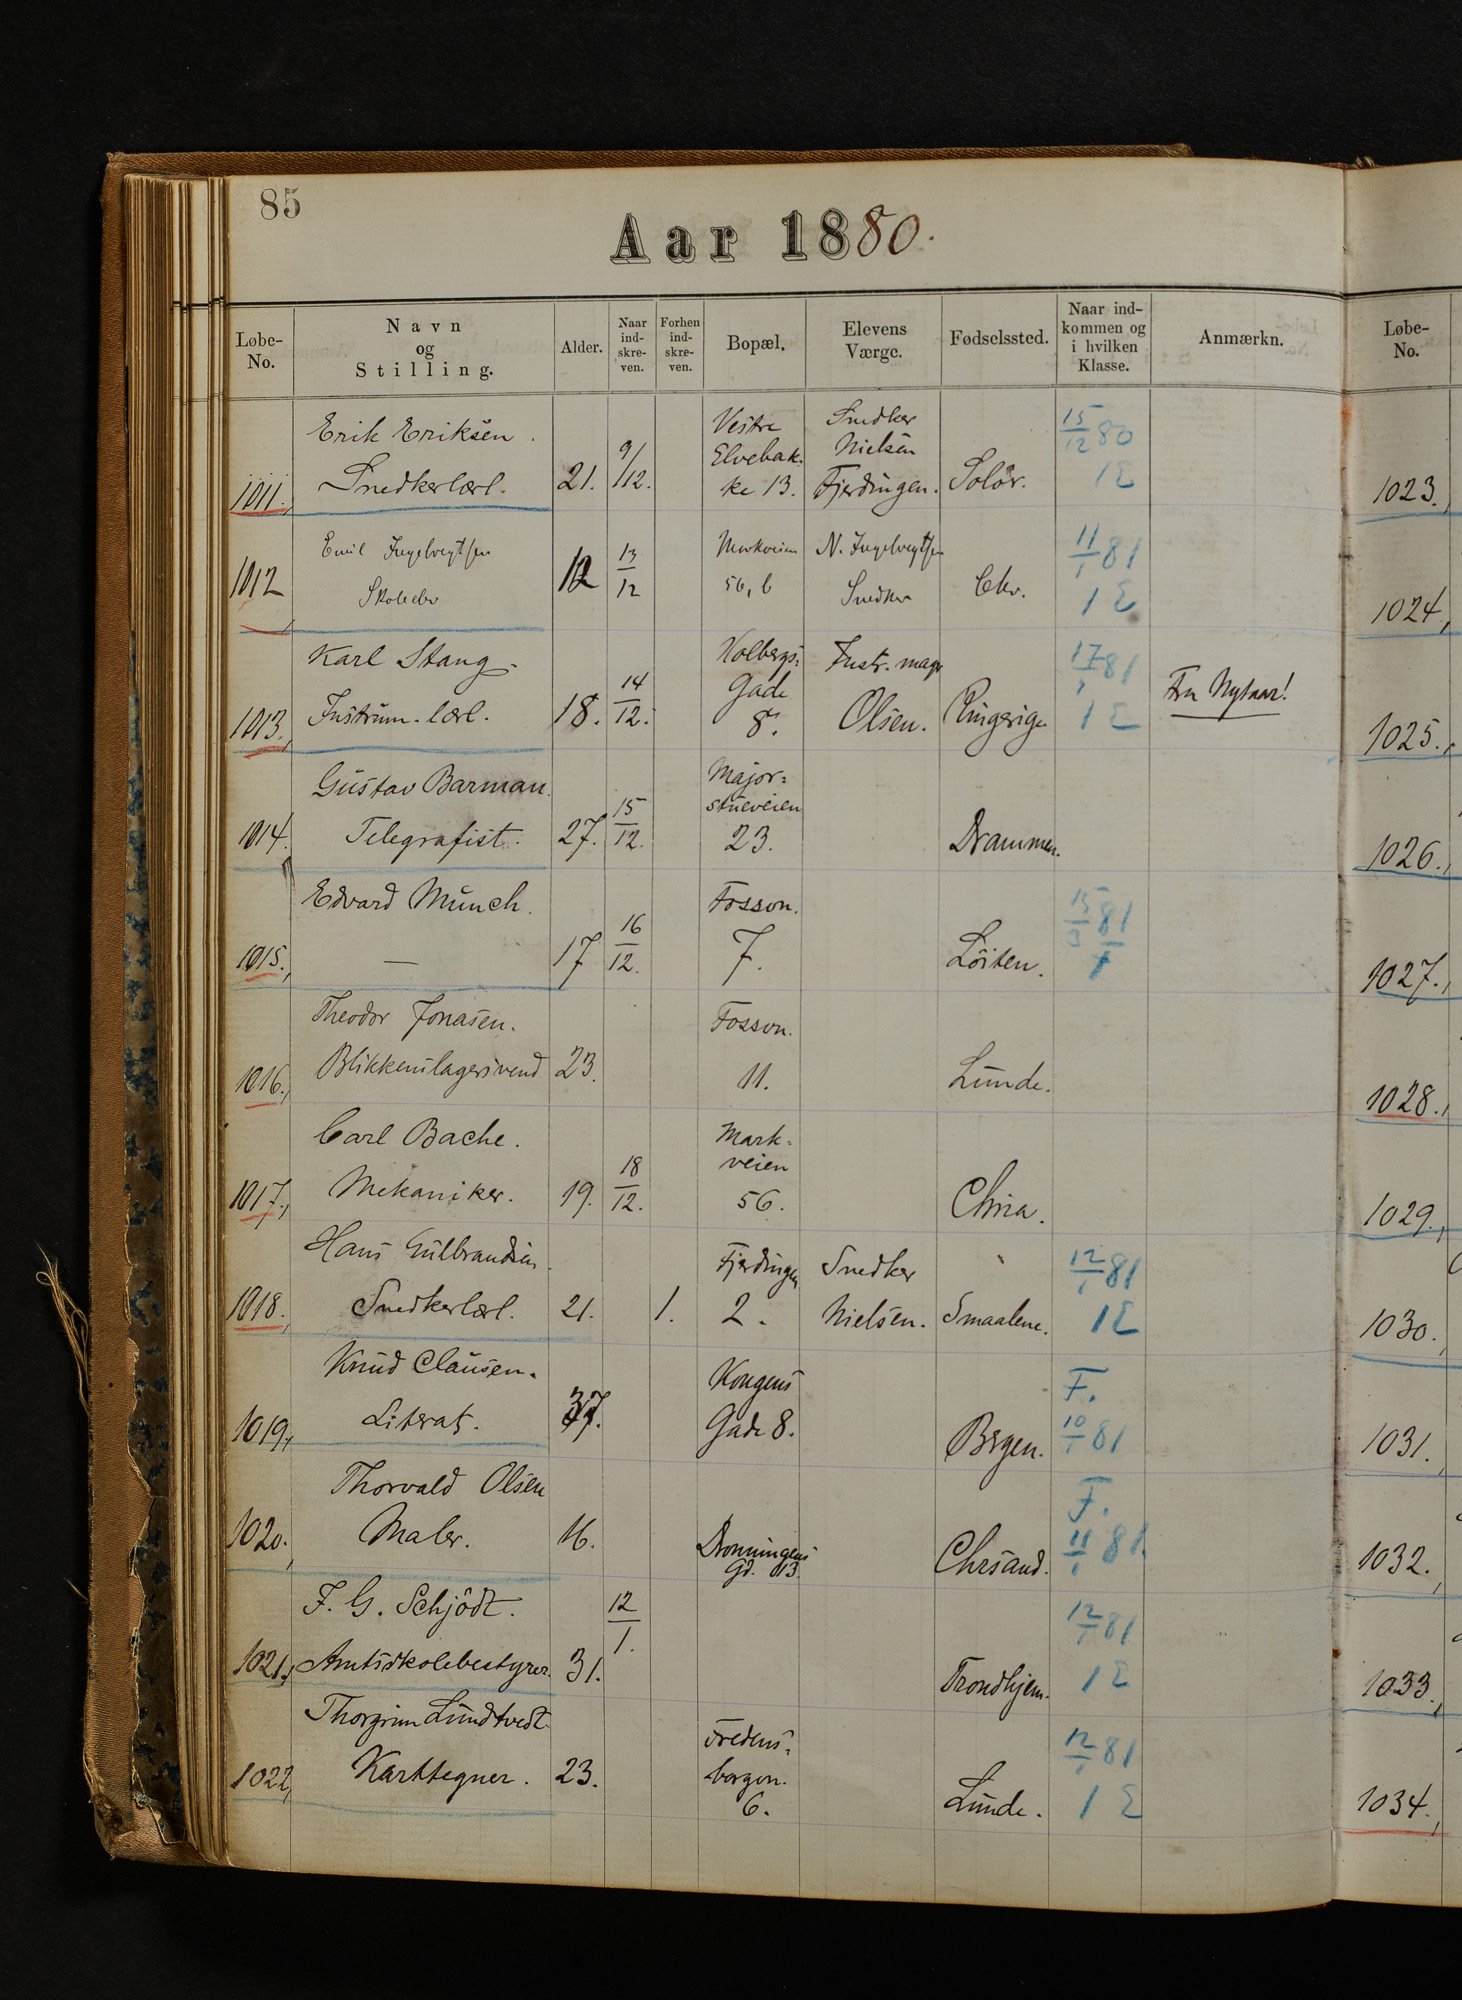 85
Aar 1880.
Løbe-No. Navn og Stilling. Alder. Naar ind-skre-ven. Forhen ind-skre-ven. Bopæl. Elevens Værge. Fødselssted. Naar ind-kommen og i hvilken Klasse. Anmærkn. Løbe-No.
Erik Eriksen. Vestre Snedker 15/12 80
Elvebak- Nielsen
1011. Snedkerlærl. 21. 9/12. ke 13. Fjerdingen. Solør. 1 E 1023.
Emil Ingebregtsen Markveien N. Ingebregtsen 11/1 81
1012 Skoleelev 12 13/12 56, b Snedker Chr. 1 E 1024,
Karl Stang. Holbergs- Instr. mager 17/1 81
Gade Fra Nytaar!
1013. Instrum. lærl. 18. 14/12. 8. Olsen. Ringerige 1 E 1025.
Gustav Barman. Major-
stueveien
1014. Telegrafist. 27. 15/12. 23. Drammen. 1026.
Edvard Munch. Fosson. 15/3 81
1015. — 17 16/12. 7. Löiten. F 1027.
Theodor Jonasen. Fosson.
1016. Blikkenslagersvend 23. 11. Lunde. 1028.
Carl Bache. Mark-
veien
1017. Mekaniker. 19. 18/12. 56. Chria. 1029.
Hans Gulbrandsen. Fjerdingen Snedker 12/1 81
1018. Snedkerlærl. 21. 1. 2. Nielsen. Smaalene. 1 E 1030.
Knud Clausen. Kongens F.
1019. Literat. 37. Gade 8. Bergen. 10/1 81 1031.
Thorvald Olsen F.
1020. Maler. 16. Dronningens Gd. 13. Chrsand. 11/1 81. 1032.
F. G. Schjödt. 12/1. 12/1 81
1021. Amtsskolebestyrer. 31. Trondhjem. 1 E 1033.
Thorgrim Lundtvedt. Fredens- 12/1 81
1022, Karttegner. 23. borgvn. 6. Lunde. 1 E 1034.